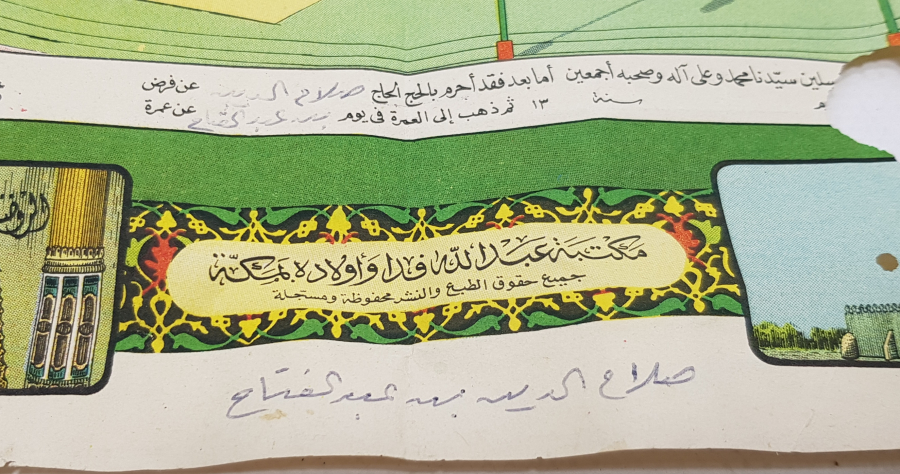 سلين سيدنا محمد وعلى آله وصحبه أجمعين أما بعد فقد أحرم بالحج الحاج صلاح الدين عن فرض
سنة ١٣ ثم ذهب إلى العمرة في يوم بن عبد الفتاح عن عمرة
الروضة
مكتبة عبد الله فدا وأولاده بمكة
جميع حقوق الطبع والنشر محفوظة ومسجلة
صلاح الدين بن عبد الفتاح